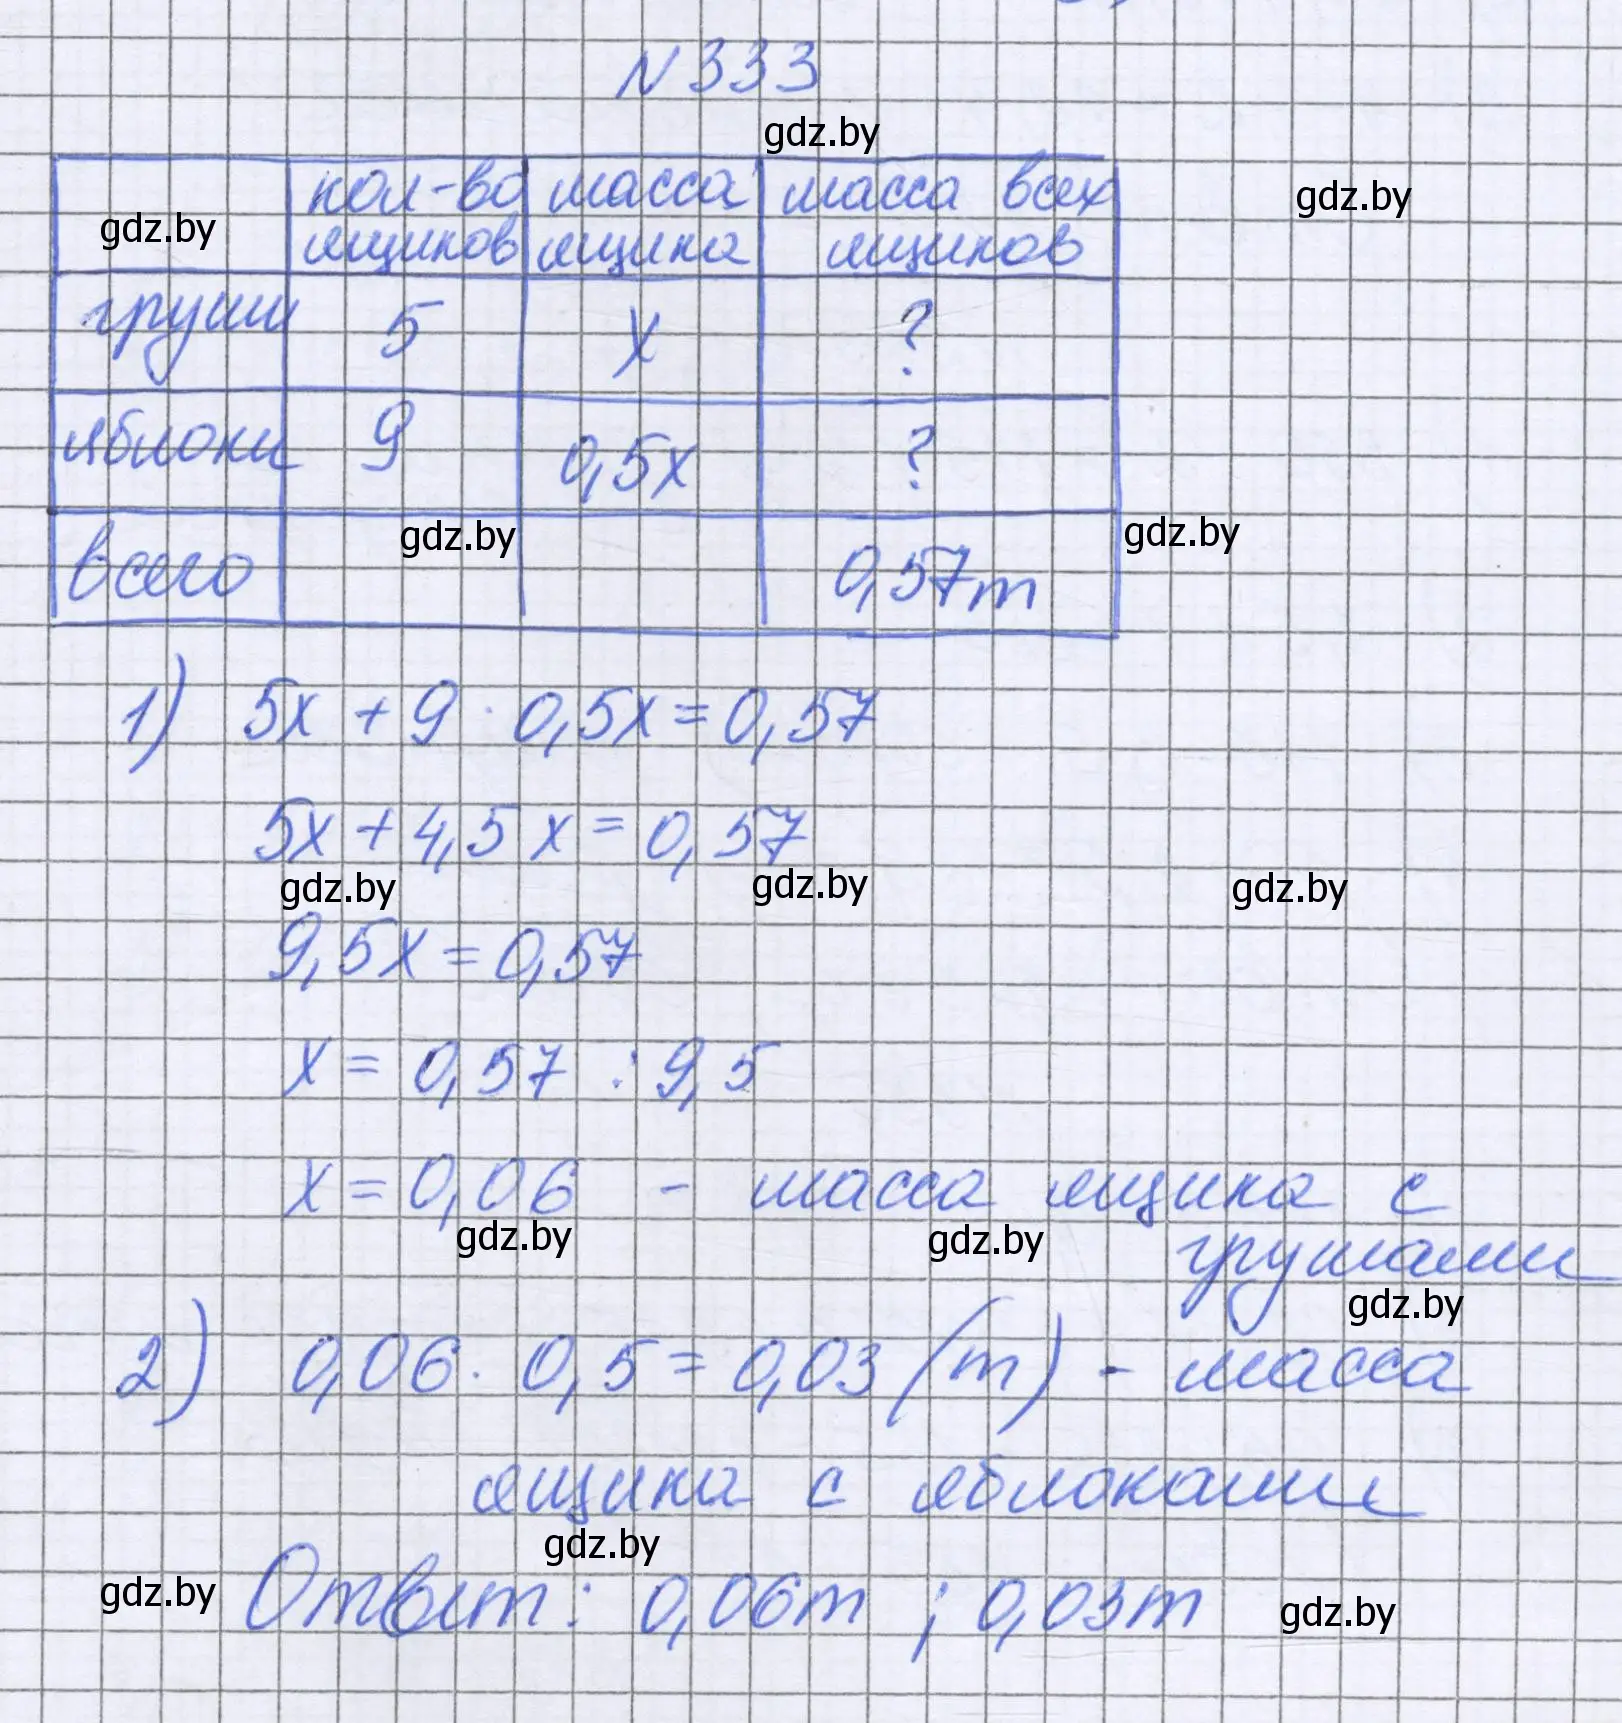 N 333
gdz.by
gdz.by
кол-во ящиков
масса ящика
масса всех ящиков
gdz.by
груши 5 x ?
яблоки 9 0,5x ?
gdz.by
gdz.by
всего 0,57т
1) 5x + 9 · 0,5x = 0,57
5x + 4,5x = 0,57
gdz.by gdz.by gdz.by
9,5x = 0,57
x = 0,57 : 9,5
x = 0,06 - масса ящика с
gdz.by gdz.by
грушами
gdz.by
2) 0,06 · 0,5 = 0,03 (т) - масса
ящика с яблоками
gdz.by
gdz.by
Ответ: 0,06т ; 0,03т
gdz.by